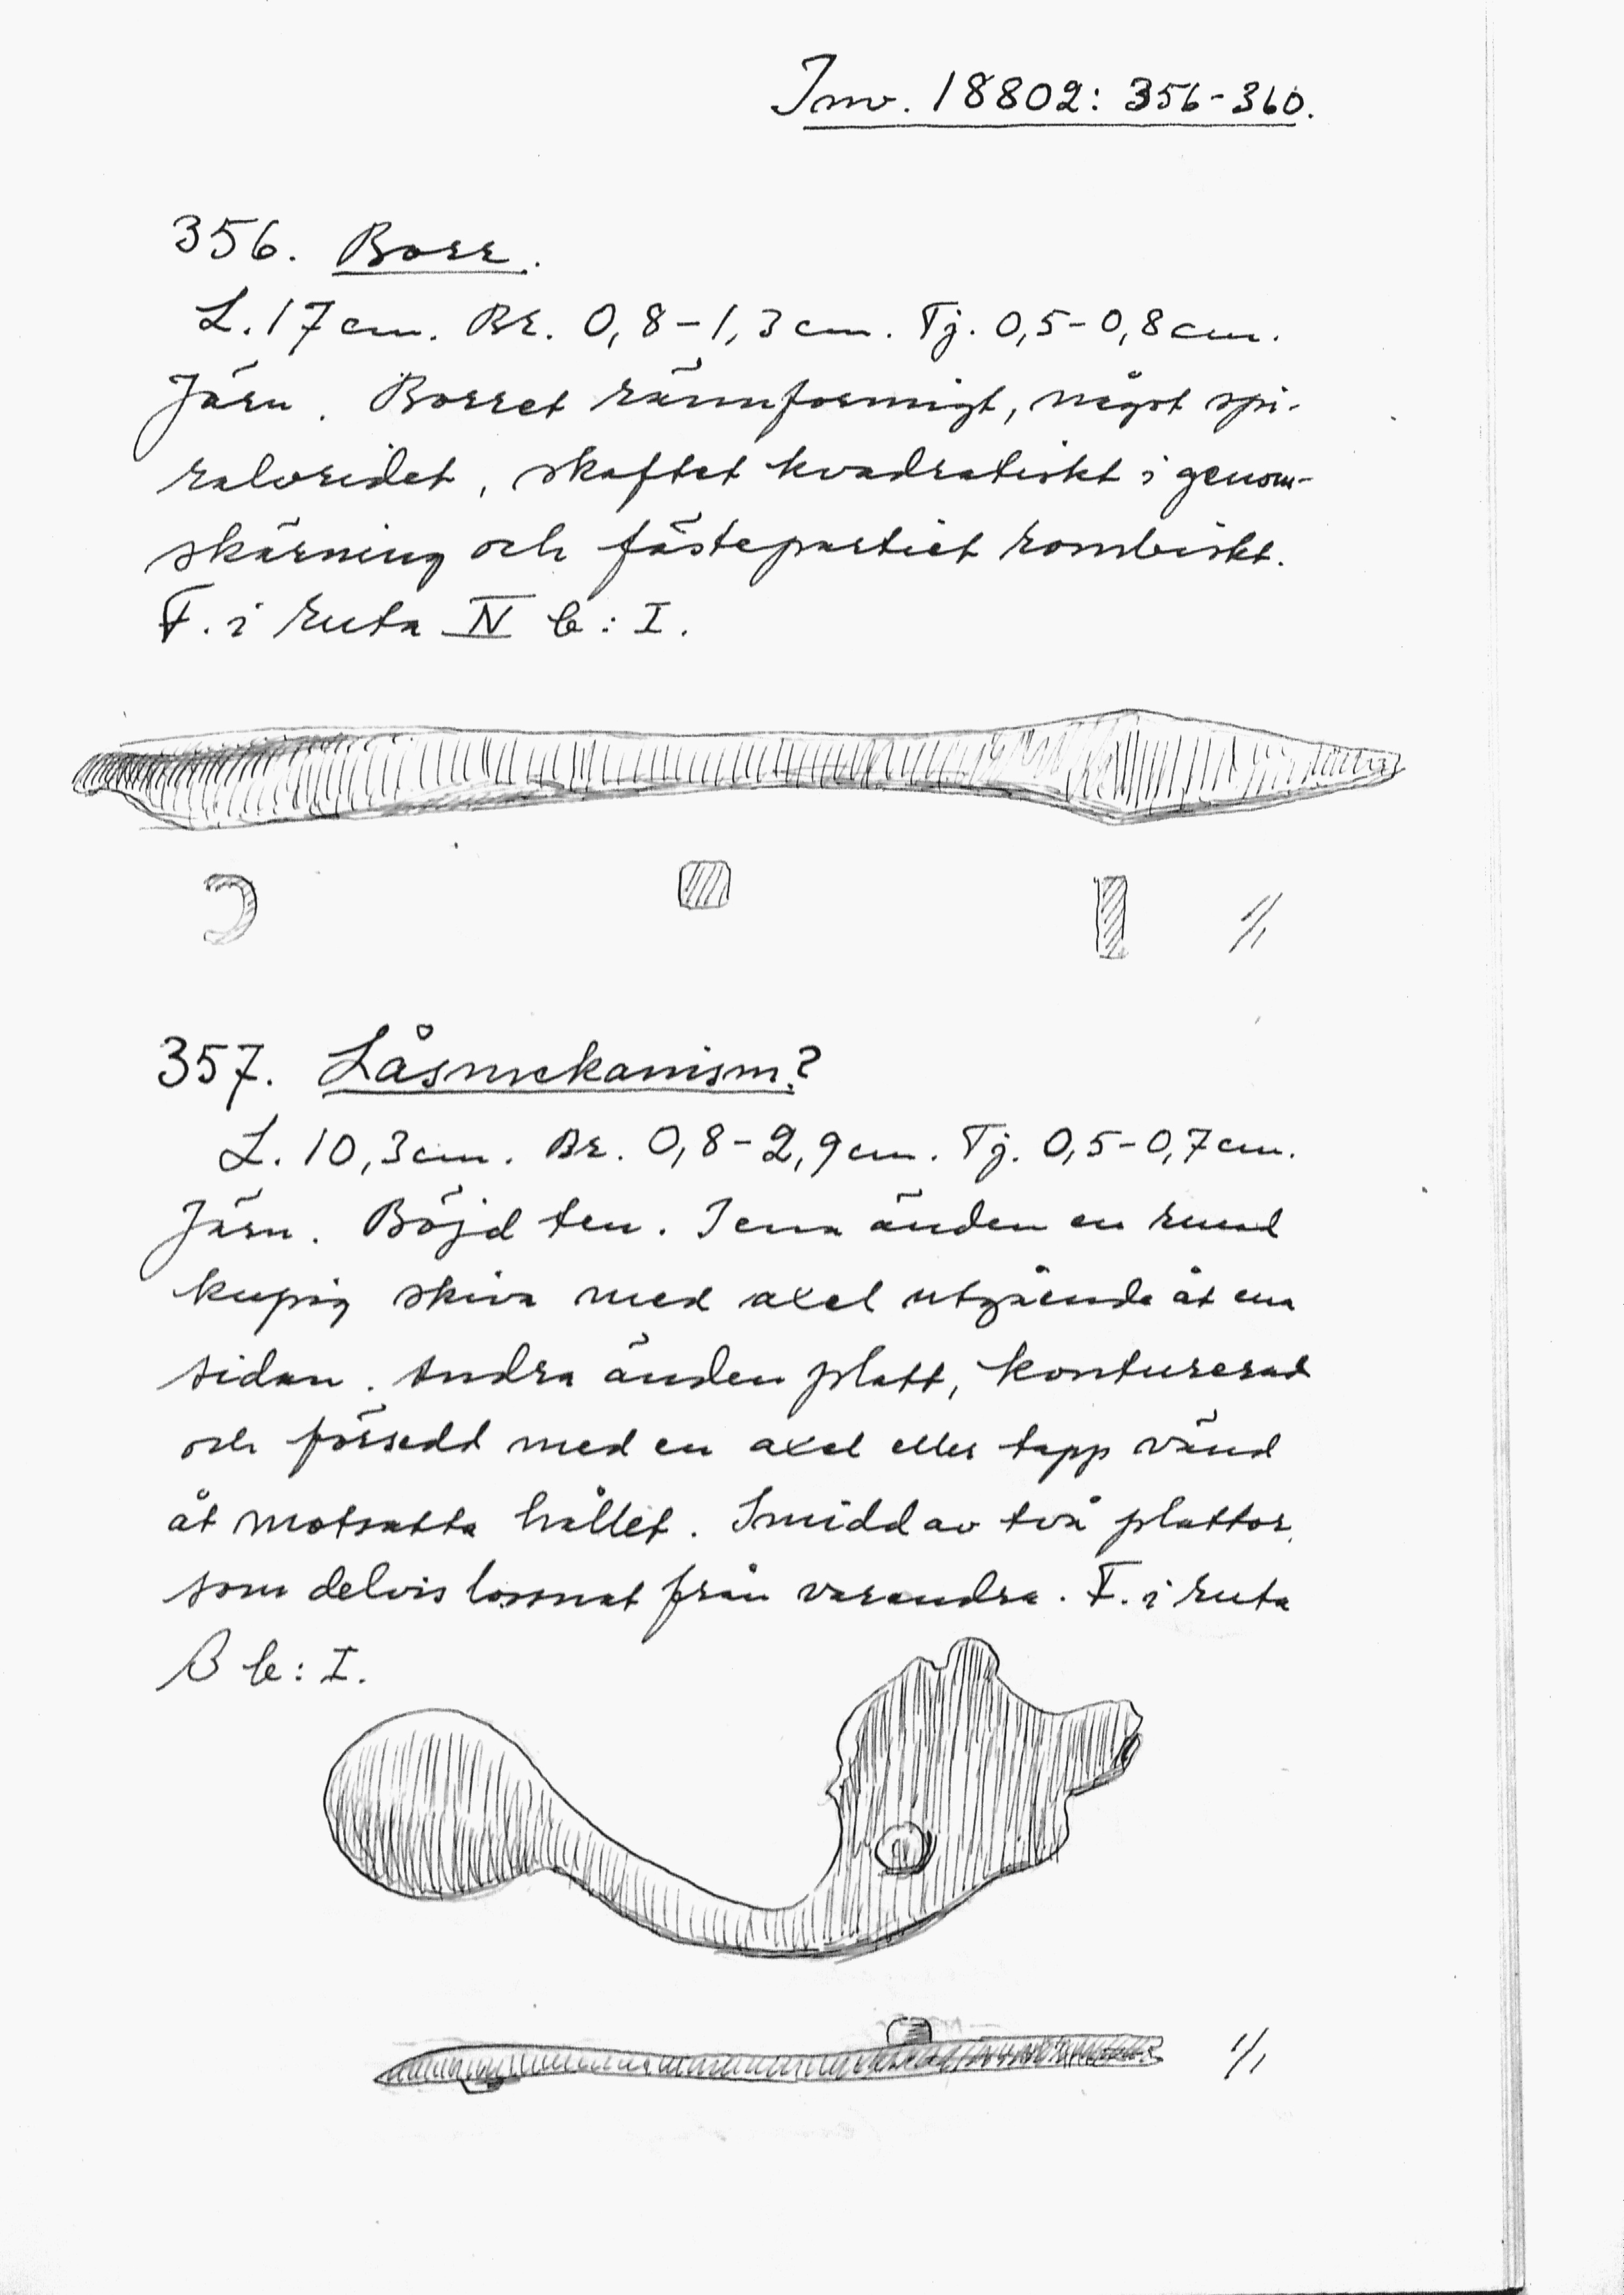 Inv. 18802: 356-360.
356. Borr.
L. 17 cm. Br. 0,8-1,3 cm. Tj. 0,5-0,8 cm.
Järn. Borret rännformigt, något spi-
ralvridet, skaftet kvadratiskt i genom-
skärning och fästepartiet rombiskt.
F. i ruta IV b: I.
1/1
357. Låsmekanism?
L. 10,3 cm. Br. 0,8-2,9 cm. Tj. 0,5-0,7 cm.
Järn. Böjd ten. I ena änden en rund
kupig skiva med axel utgående åt ena
sidan. Andra änden platt, konturerad
och försedd med en axel eller tapp vänd
åt motsatta hållet. Smidd av två plattor
som delvis lossnat från varandra. F. i ruta
b: I.
1/1